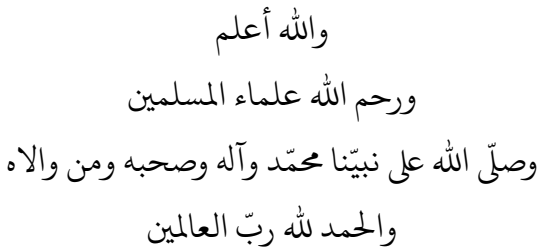 والله أعلم
ورحم الله علماء المسلمين
وصلّى الله على نبيّنا محمّد وآله وصحبه ومن والاه
والحمد لله ربّ العالمين